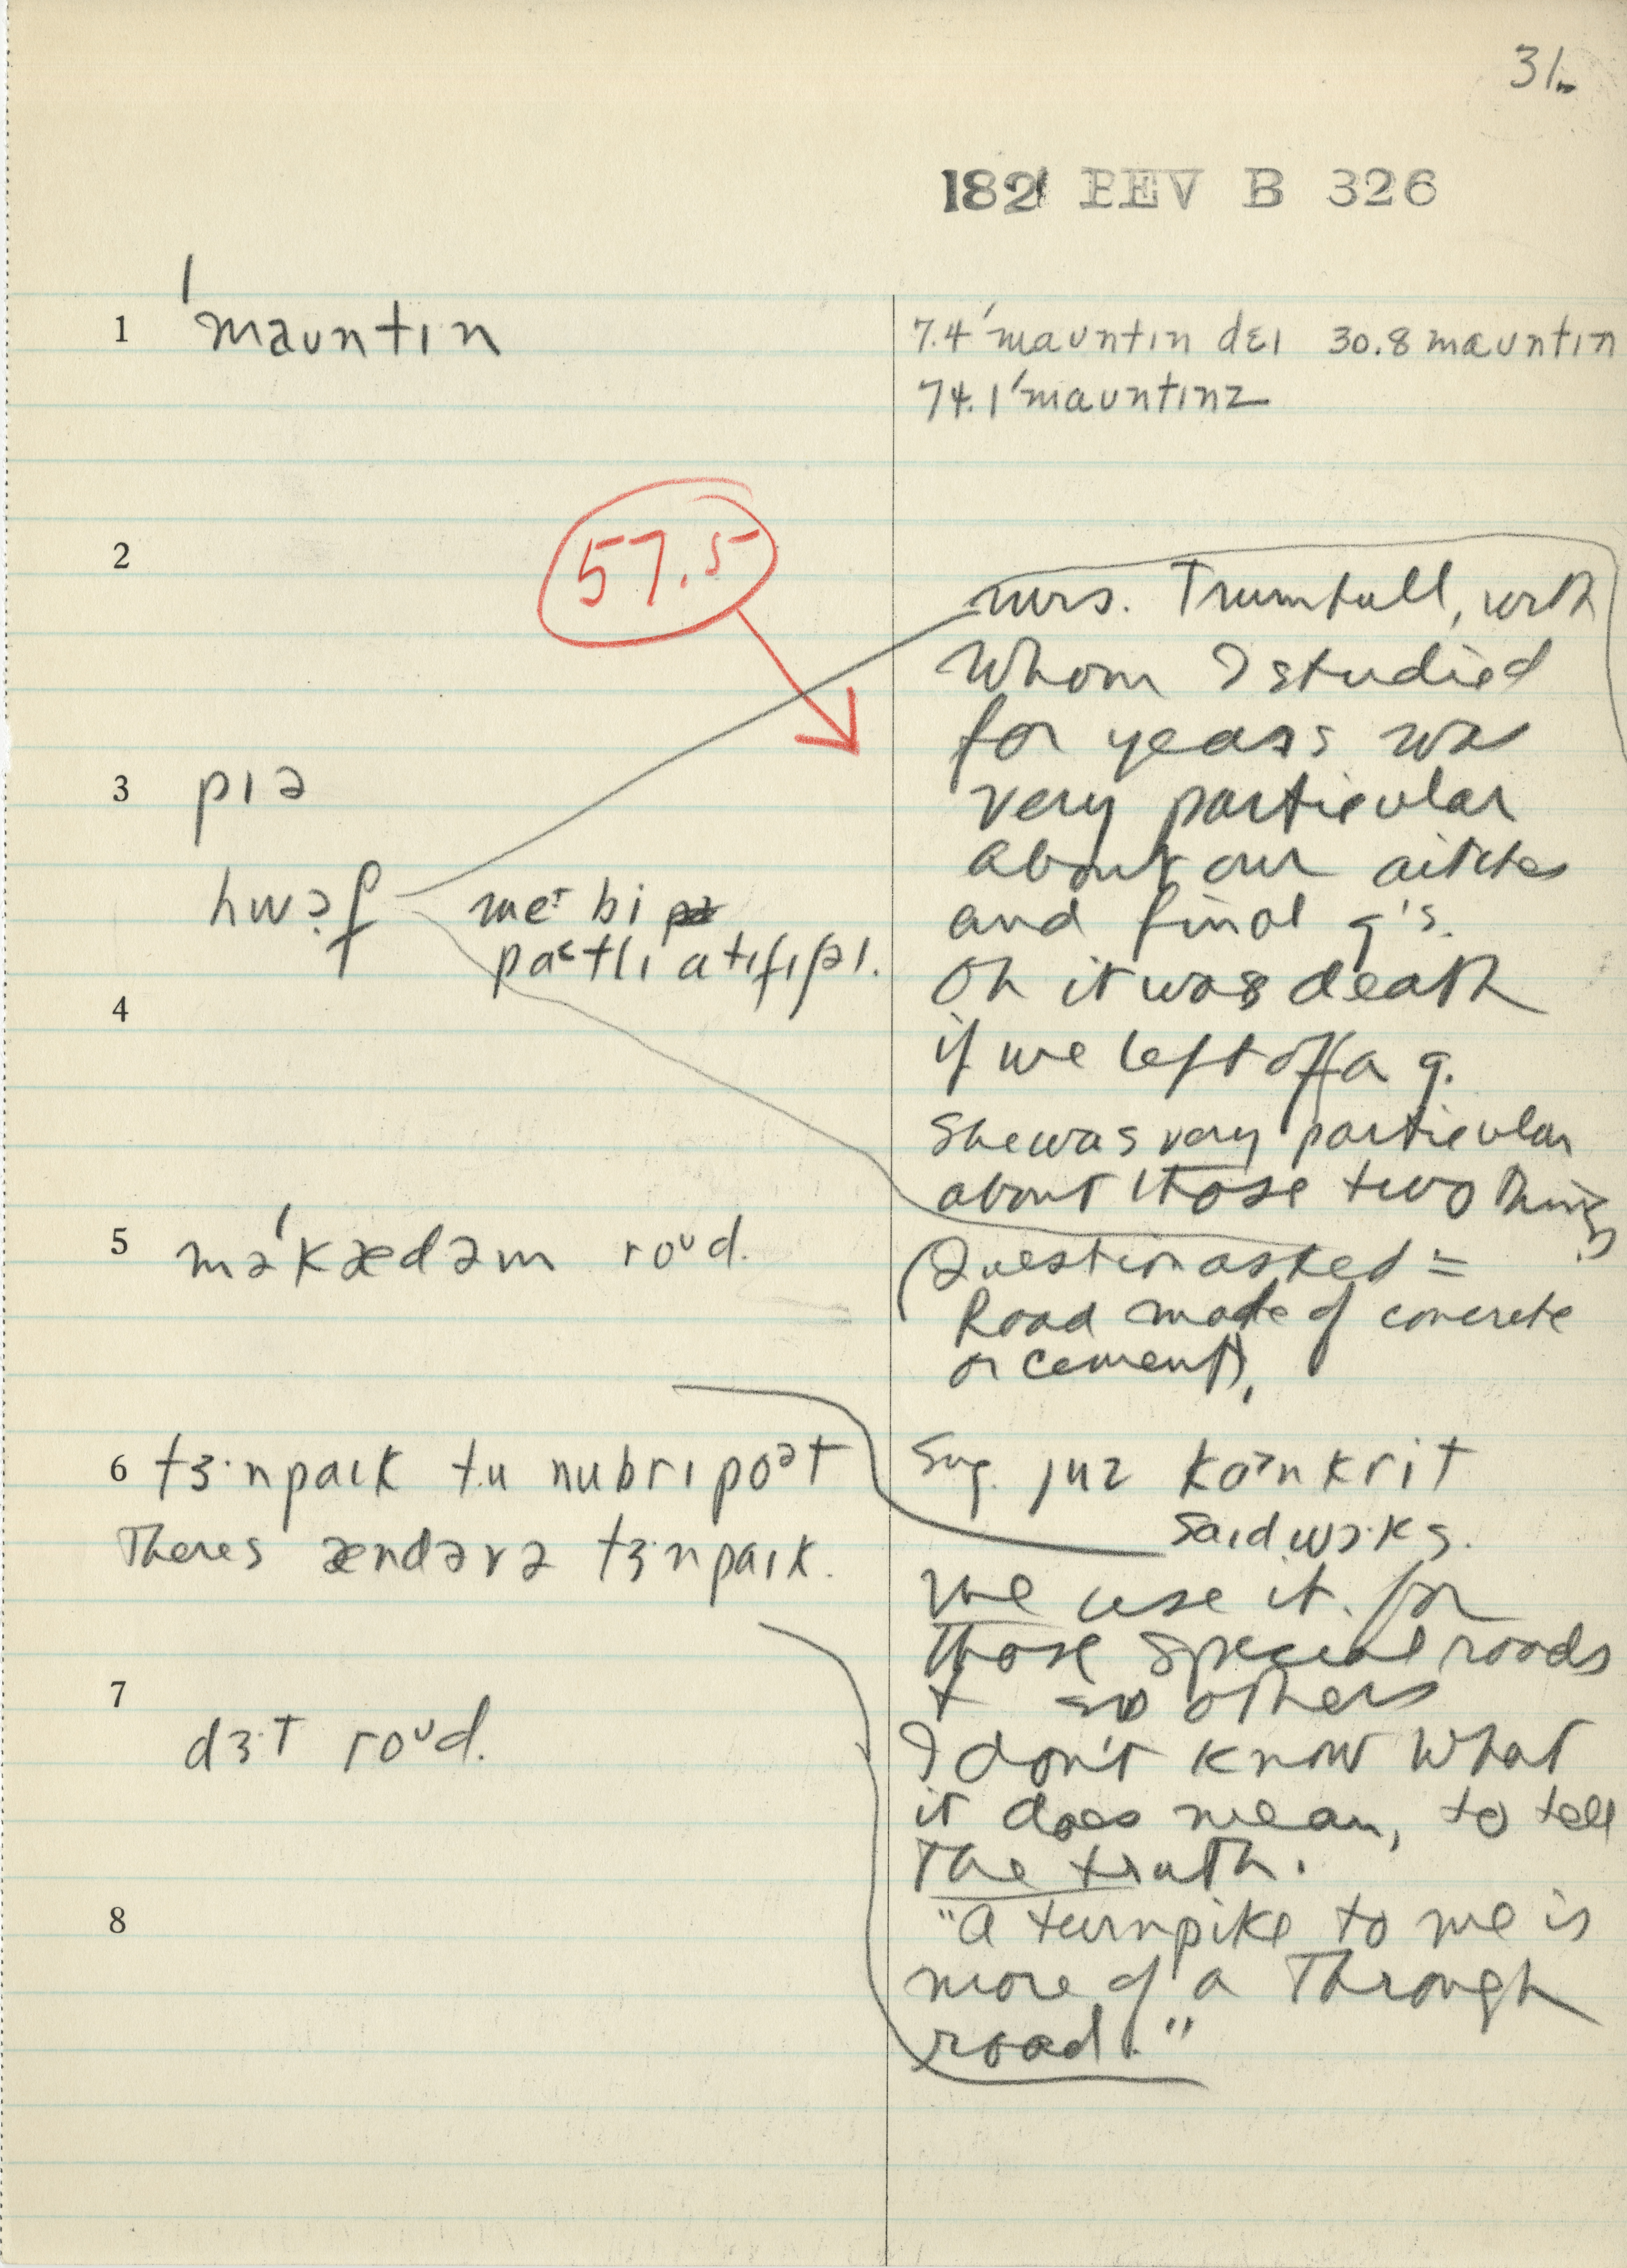 31.
182 PEV B 326
1 ˈmauntɪn
7.4 ˈmauntɪn dɛɪ 30.8 mauntɪn
74.1 ˈmauntɪnz
2
57.5
mrs. Trumbull, with
whom I studied
for years was
very particular
about our aitches
and final g's.
Oh it was death
if we left off a g.
She was very particular
about those two things
3 pɪə
hwɔf me bi
pɑtlɪ ɑtɪfɪʃəl.
4
5 məˈkædəm roʊd.
(Question asked =
Road made of concrete
or cement),
6 tɜ·npaɪk tu nubrɪpoət
Theres ændəvə tɜ·npaɪk.
Sug. juz kɒnkrit
saɪdwɔ·ks.
We use it for
those special roads
+ no others
I don't know what
it does mean, to tell
the truth.
"A turnpike to me is
more of a through
road."
7 dɜ·t roʊd.
8